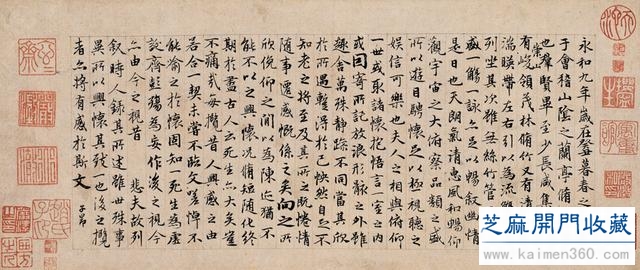 永和九年歲在癸丑暮春之
于會稽山陰之蘭亭脩
也羣賢畢至少長咸集
有崇山峻領茂林脩竹又有清
湍暎帶左右引以為流
列坐其次雖無絲竹管
盛一觴一詠亦足以暢叙幽情
是日也天朗氣清惠風和暢仰
觀宇宙之大俯察品類之盛
所以遊目騁懷足以極視聽之
娛信可樂也夫人之相與俯仰
一世或取諸懷抱悟言一室之內
或因寄所託放浪形骸之外雖
趣舍萬殊靜躁不同當其欣
於所遇蹔得於己怏然自足不
知老之將至及其所之既惓情
隨事遷感慨係之矣向之所
欣俛仰之間以為陳迹猶不
能不以之興懷況脩短隨化終
期於盡古人云死生亦大矣豈
不痛哉每攬昔人興感之由
若合一契未嘗不臨文嗟悼不
能喻之於懷固知一死生為虛
誕齊彭殤為妄作後之視今
亦由今之視昔悲夫故列
叙時人錄其所述雖世殊事
異所以興懷其致一也後之攬
者亦將有感於斯文
子昂
芝麻開門收藏
www.kaimen360.com